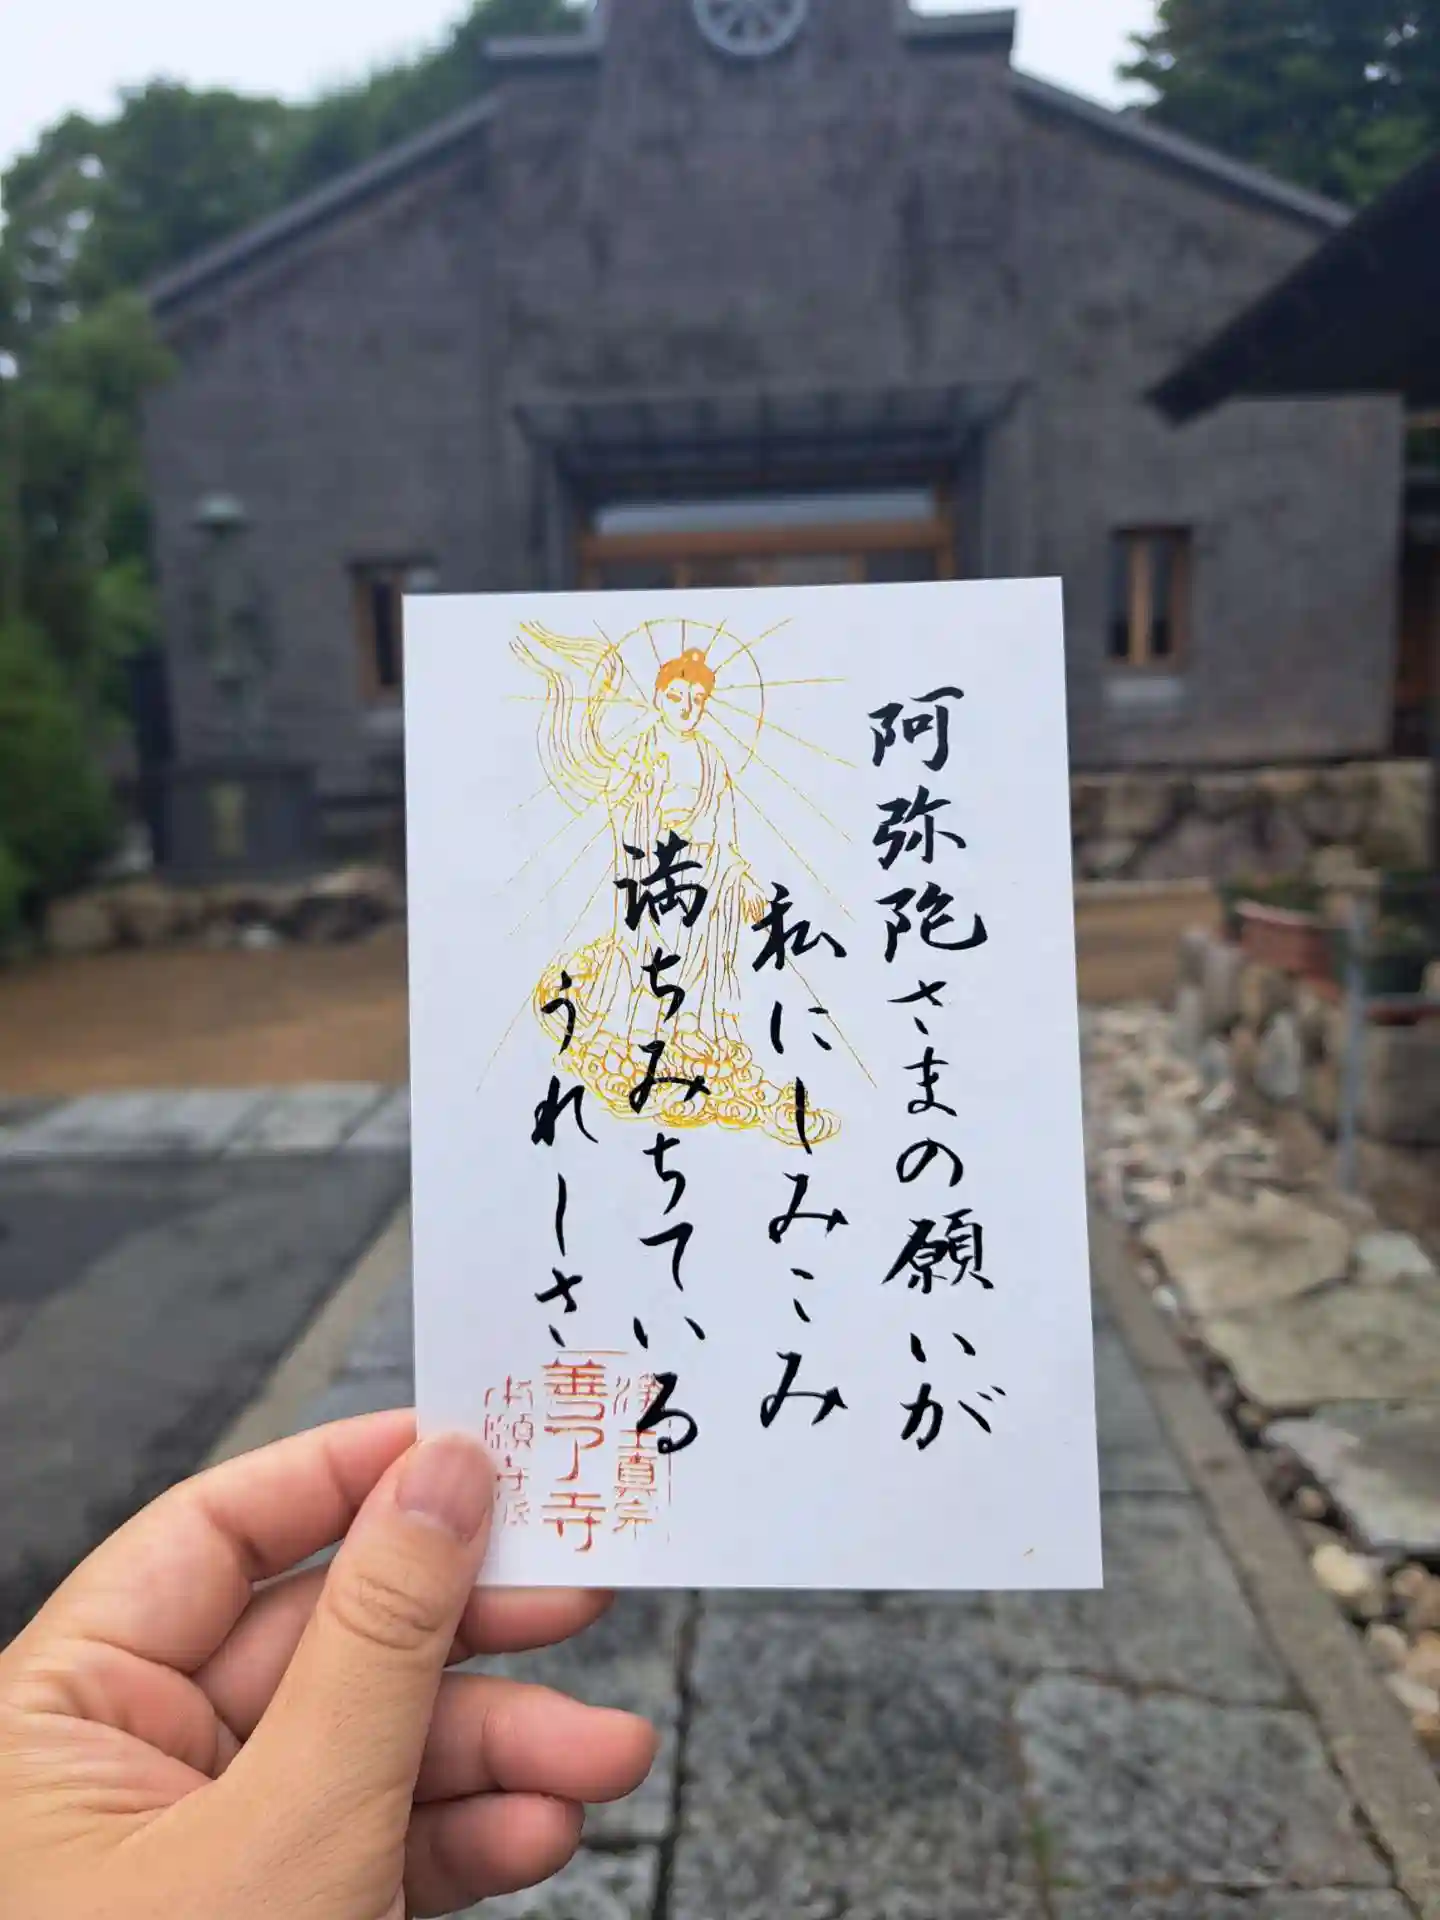 阿弥陀さまの願いが
私にしみこみ
満ちみちている
うれしさ
浄土真宗
善了寺
本願寺派